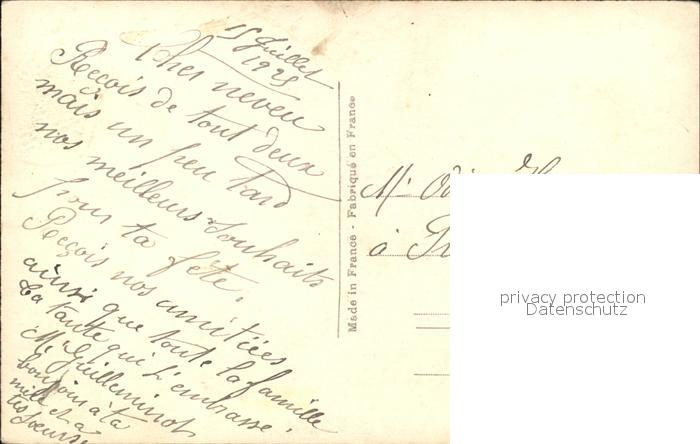 15 Juillet
1925
Cher neveu
Reçois de tout deux
mais un peu tard
nos meilleurs souhaits
pour ta fête.
Reçois nos amitiées
ainsi que toute la famille
ta tante qui t'embrasse.
M. Guilleminot
bonjour à ta
mille et à
tes soeurs
Made in France - Fabriqué en France
Mr
à
privacy protection
Datenschutz